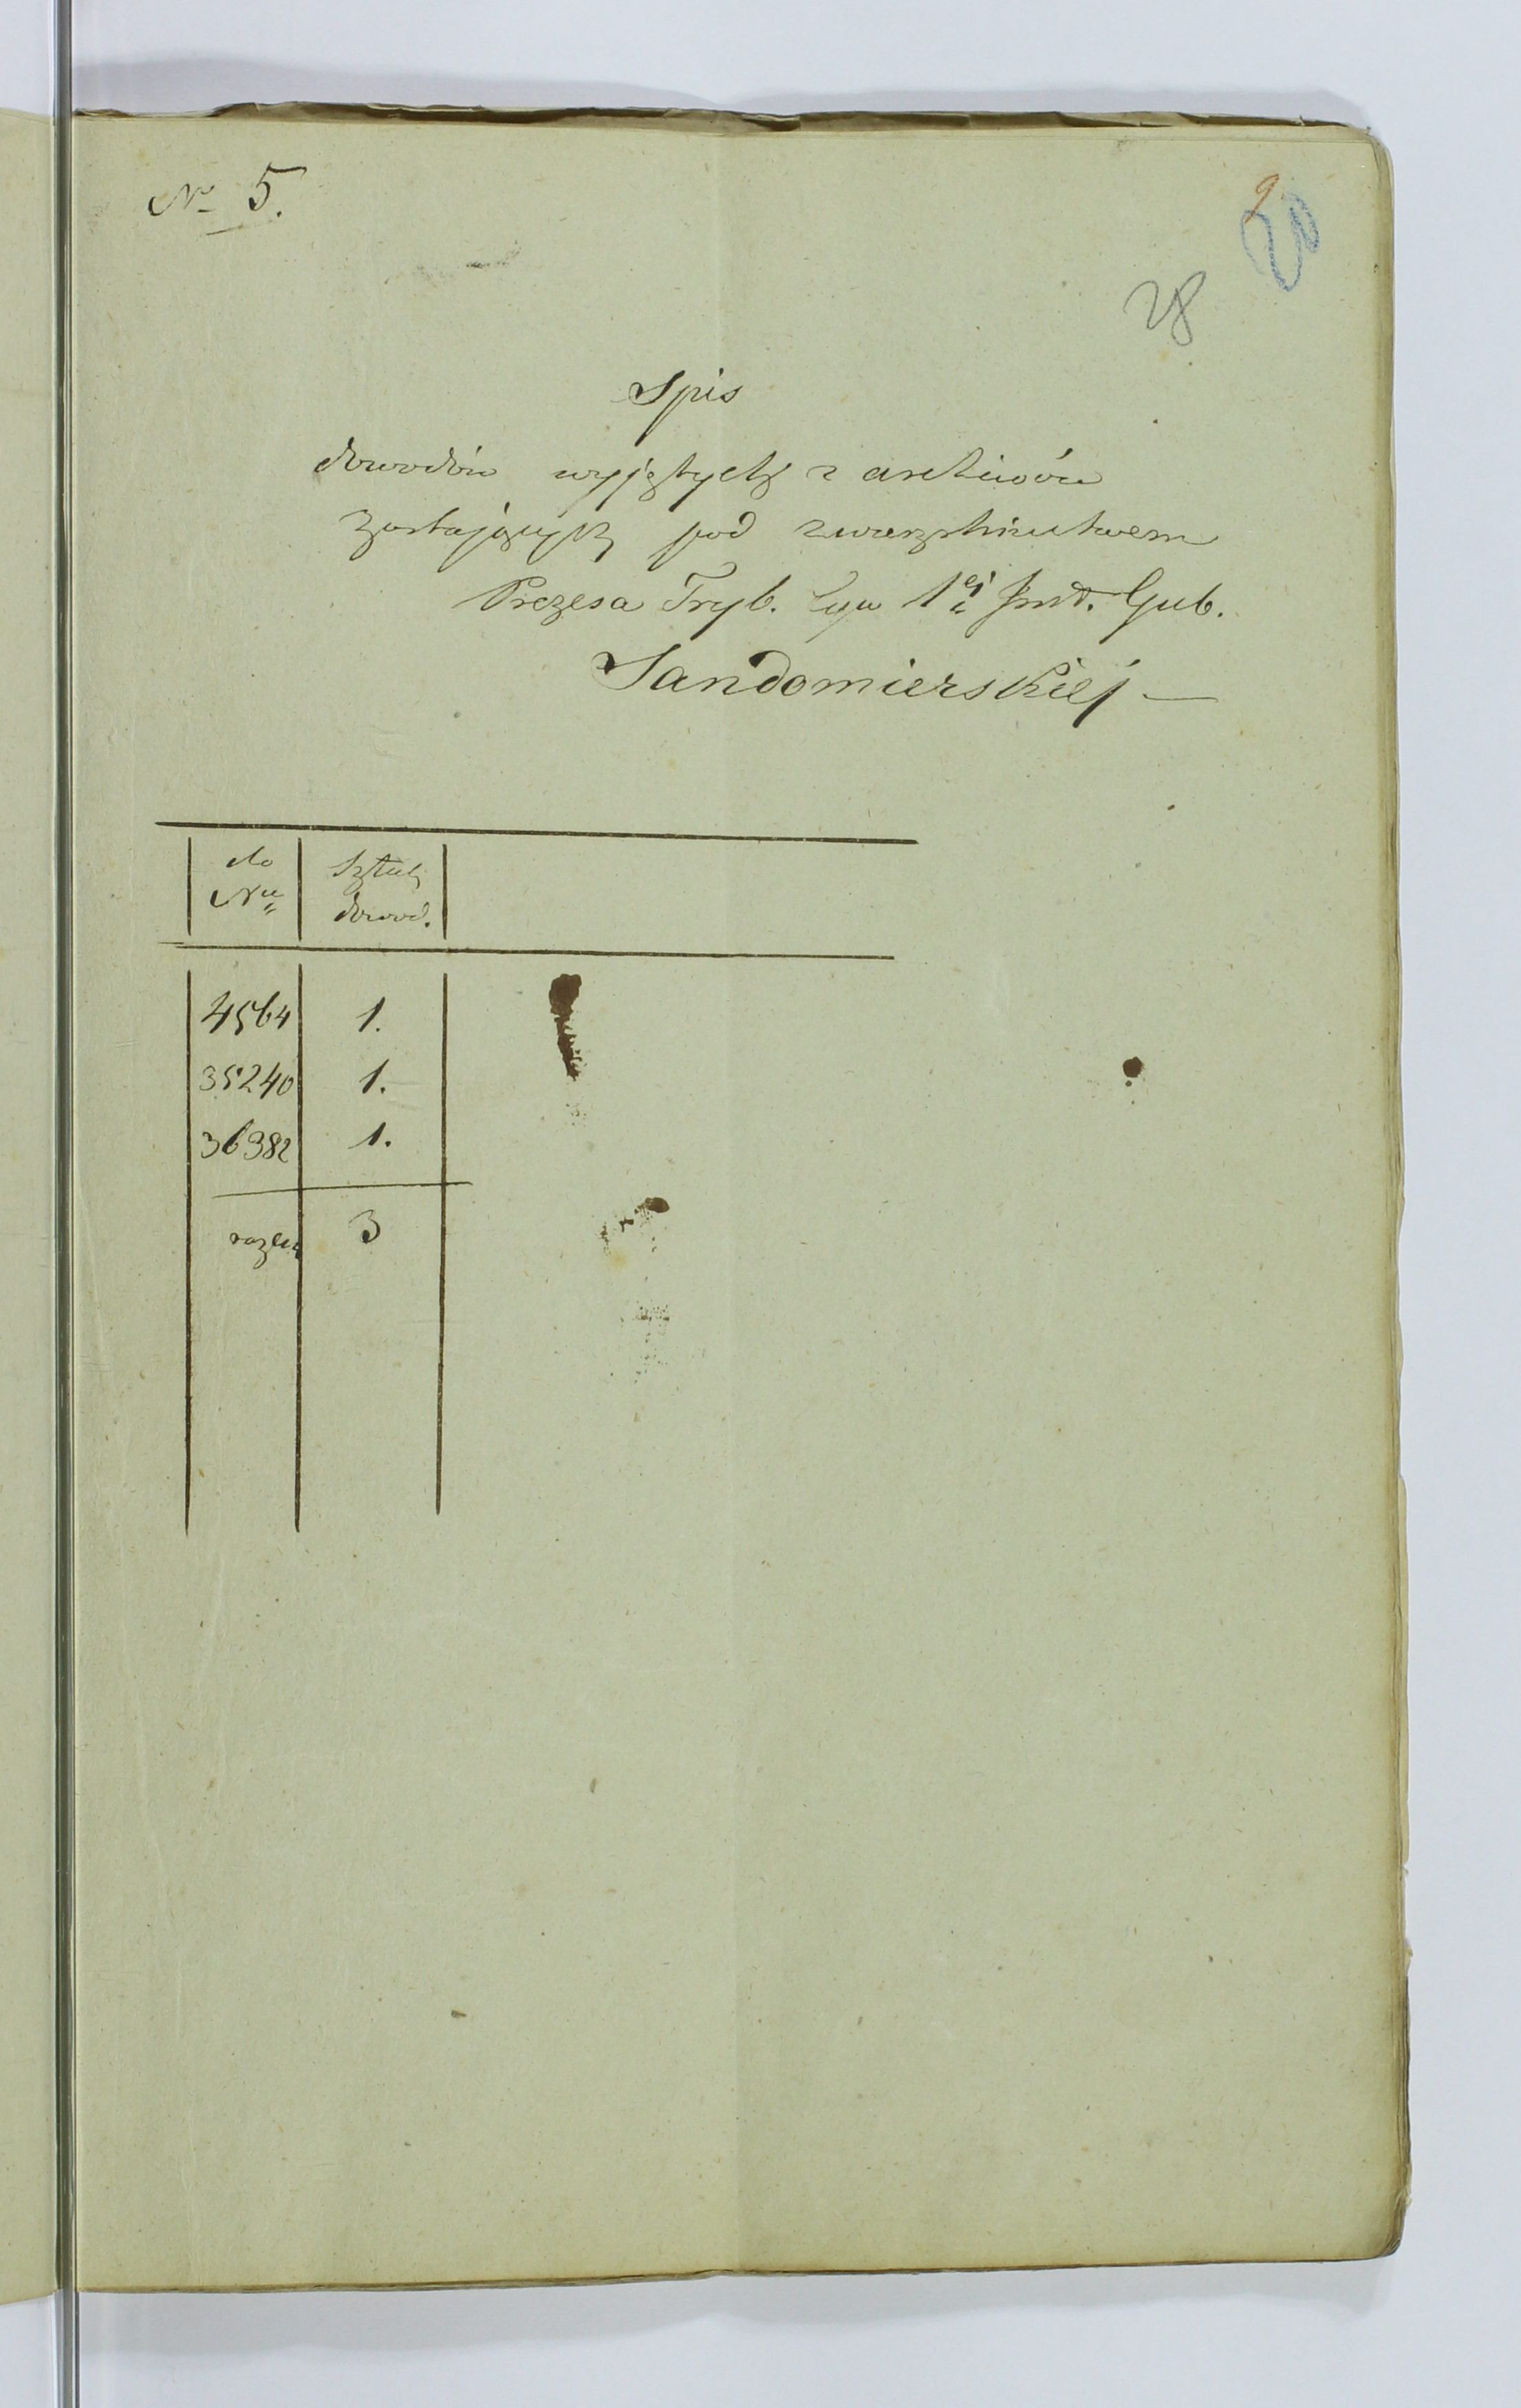 No 5.
9
20
28
Spis
dowodów wyjętych z archiwów
zostających pod zwierzchnictwem
Prezesa Tryb. Cyw 1ej Inst. Gub.
Sandomierskiej —
do Sztuk
Nru dowod.
4564 1.
35240 1.
36382 1.
razem 3